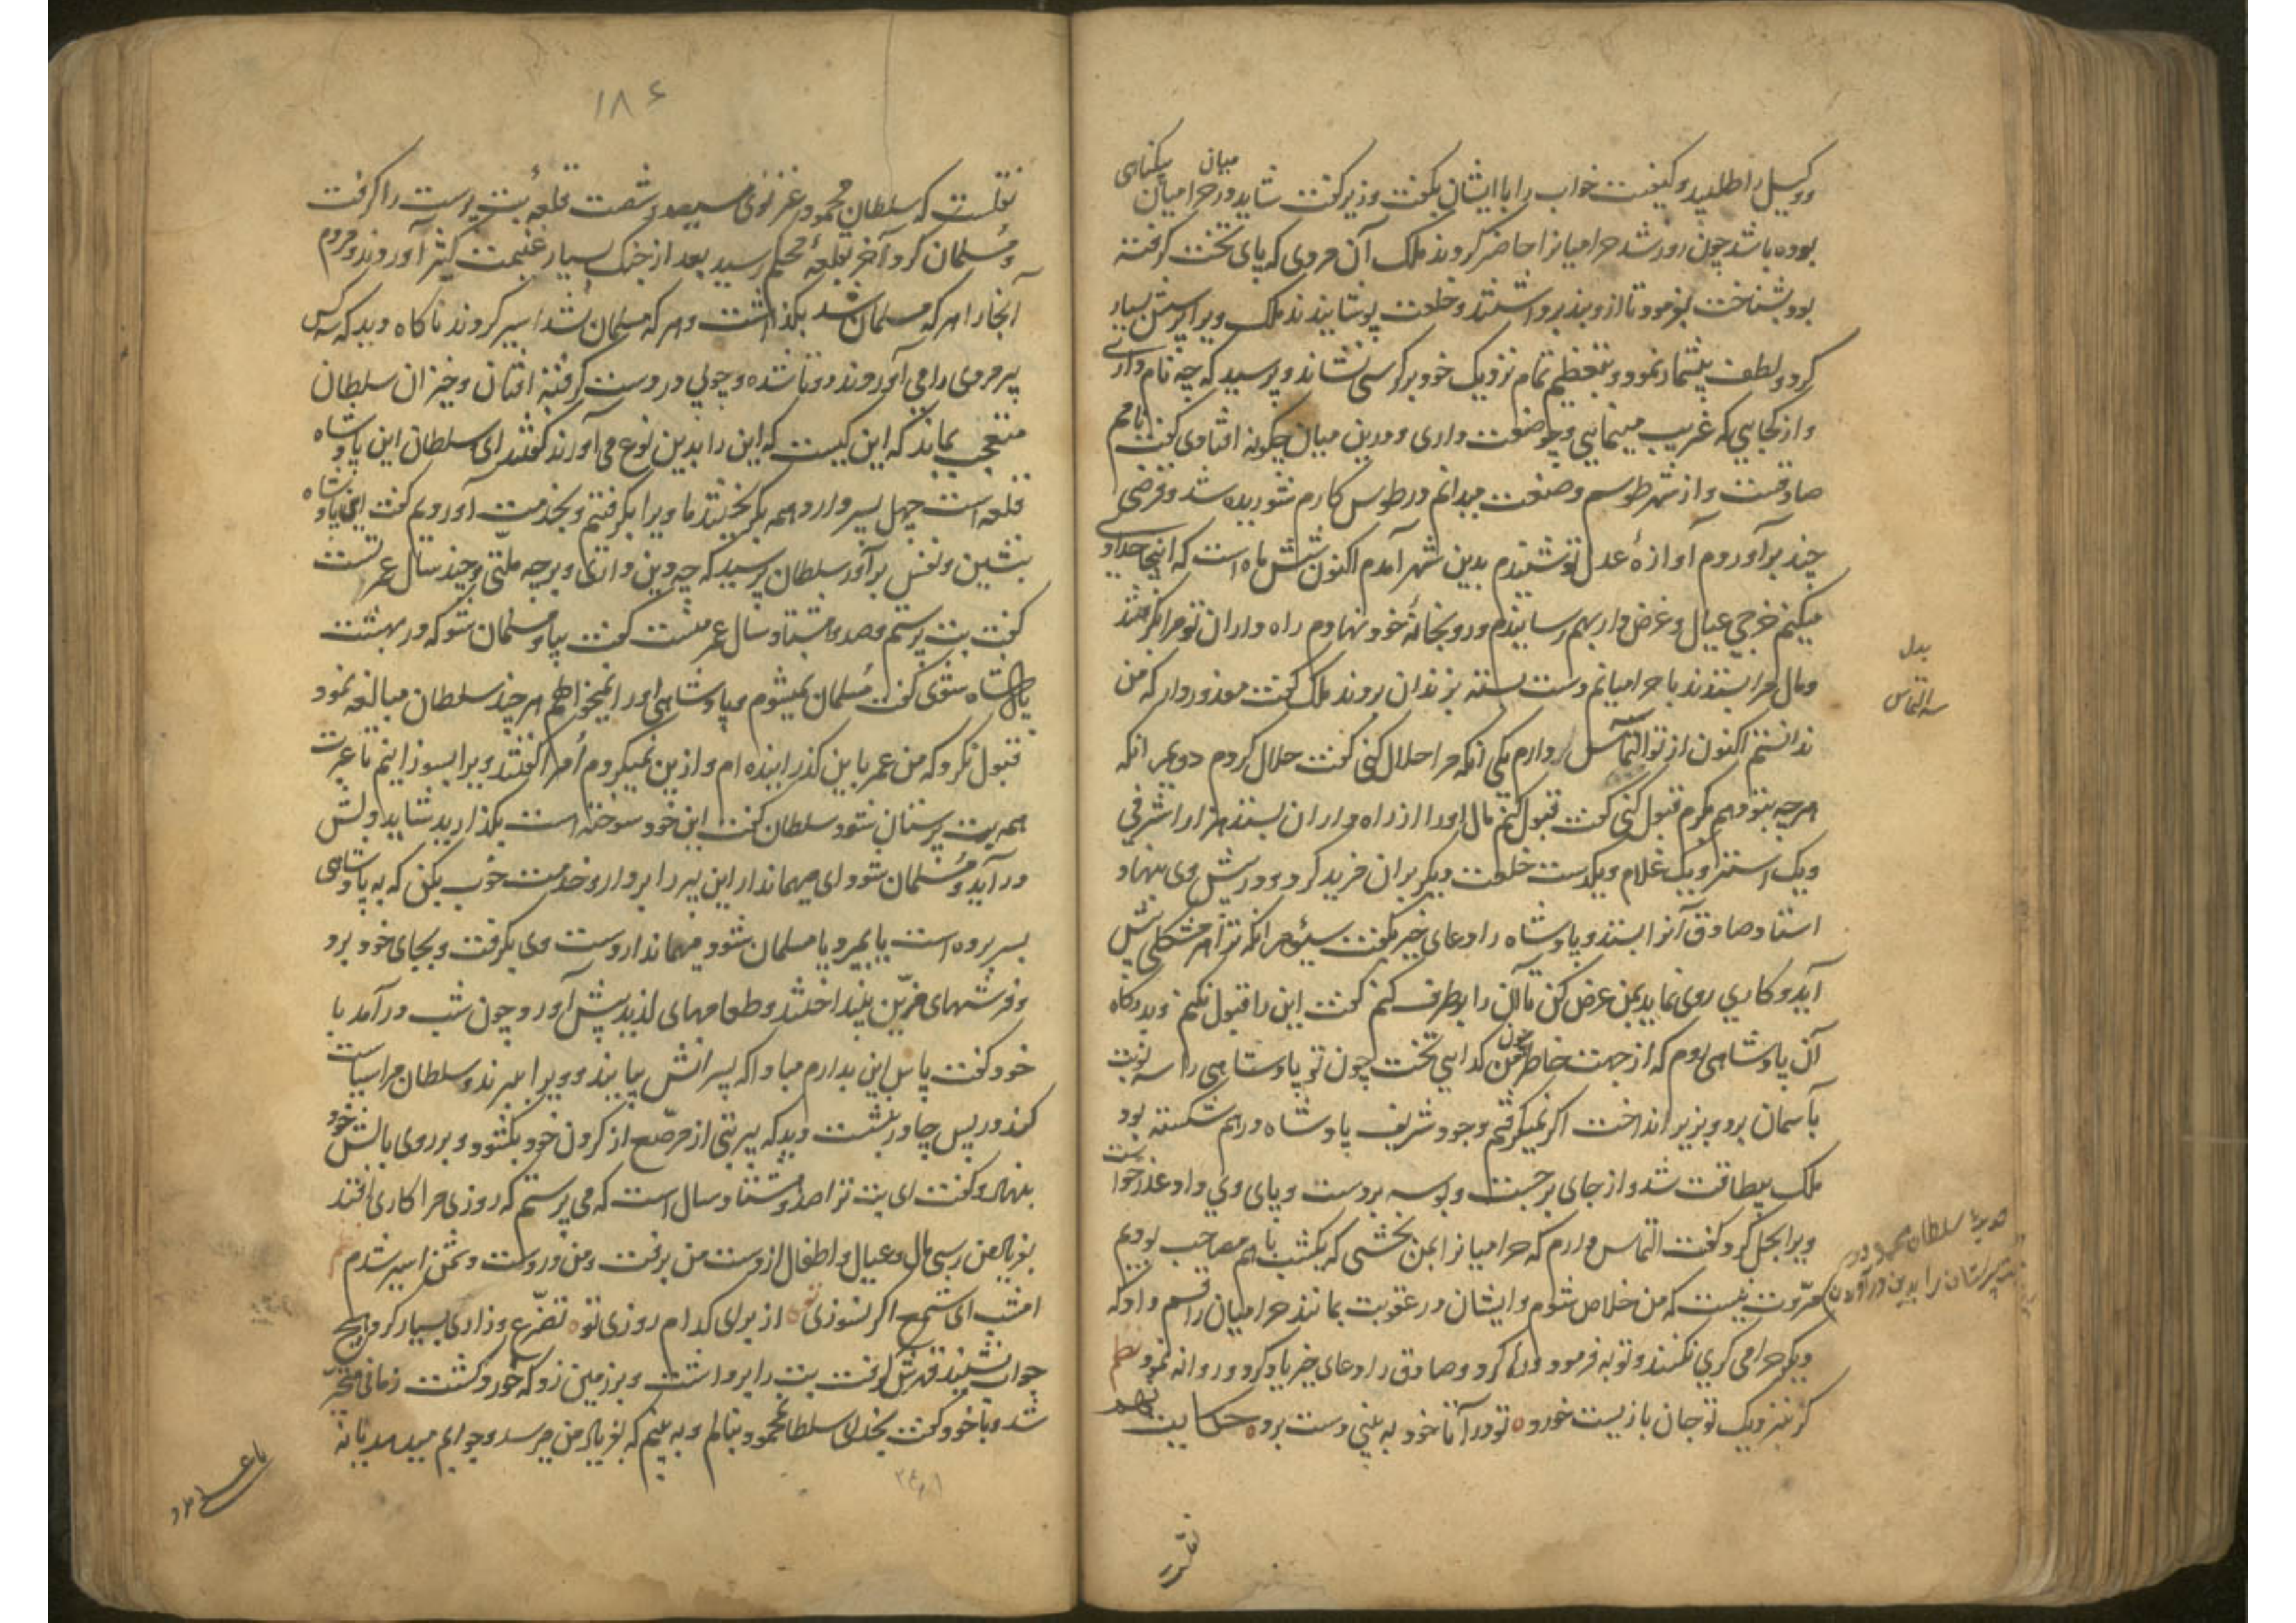 ووکیل را طلبید و کیفیت خواب را با ایشان بگفت وزیر گفت شاید در حرامیان
میان بیگناهی
بوده باشد چون روز شد حرامیانرا حاضر کردند ملک آن مردی که پای تخت گرفته
بود بشناخت بفرمود تا از وبند برداشتند و خلعت پوشانیدند ملک ویرا پرسش بسیار
کرد و لطف بیشمار نمود و بتعظیم تمام نزدیک خود بر کرسی نشاند و پرسید که چه نام داری
و از کجایی که غریب مینمایی و چه صنعت داری و درین میان چگونه افتادی گفت نامم
صادقست و از شهر طوسم و صنعت میدانم در طوس کارم شوریده شد و قرضی
چند برآوردم آوازهٔ عدل تو شنیدم بدین شهر آمدم اکنون شش ماه است که اینجا حدادی
میکنم خرجی عیال و غرض دار بهم رسانیدم و رو بخانهٔ خود نهادم راه داران تو مرا بگرفتند
و مال مرا بستدند با حرامیانم دست بسته بزندان بردند ملک گفت معذور دار که من
بدل
سه التماس
ندانستم اکنون از تو التماس دارم یکی انکه مرا حلال کنی گفت حلال کردم دویم انکه
هرچه بتو دهم کرم قبول کنی گفت قبول کنم مال اورا از راه داران بستد هزار اشرفی
و یک استر و یک غلام و یکدست خلعت دیگر بران مزید کرد و در پیش وی بنهاد
استاد صادق آنرا بستد و پادشاه را دعای خیر بگفت سیوم انکه ترا هر مشکلی پیش
آید و کاری روی نماید بمن عرض کن تا آن را برطرف کنم گفت این را قبول نکنم و بدرگاه
آن پادشاهی روم که از جهت خاطر چون من گدایی تخت چون تو پادشاهی را سه نوبت
بآسمان برد و بزیر انداخت اگر نمیگرفتم وجود شریف پادشاه درهم شکسته بود
ملک بیطاقت شد و از جای برجست و بوسه بر دست و پای وی داد عذر خواست
ویرا بحل کرد گفت التماس دارم که حرامیانرا بمن بخشی که یکشب با هم مصاحب بودیم
مروت نیست که من خلاص شوم و ایشان در عقوبت بمانند حرامیان را قسم داد که
سلطان محمود
پرستان را بدین درآوردن
دیگر حرامی گری نکنند و توبه فرمود کرد و صادق را دعای خیر یاد کرد و روانه نمود نظم
کز نیزدیک تو جان بازیست خورد تو درآنا خود به بینی دست برد حکایت
نقلست
۱۸۶
نقلست که سلطان محمود غزنوی سیصد و شصت قلعهٔ بت پرست را گرفت
و مسلمان کرد آخر بقلعهٔ محکم رسید بعد از جنک بسیار غنیمت کثیر آوردند و مردم
آنجا را هر که مسلمان شد بگذاشت و هر که مسلمان نشد اسیر کردند ناکاه دید که سه کس
پیر مردی را می آوردند دوتا شده و چوبی در دست گرفته افتان و خیزان سلطان
متعجب بماند که این کیست که این را بدین نوع می آورند گفتند ای سلطان این پادشاه
قلعه است چهل پسر دارد همه بگریختند ما ویرا بگرفتیم و بخدمت آوردیم گفت ای پادشاه
بنشین و نفس برآور سلطان پرسید که چه دین داری و بر چه ملتی و چند سال عمر تست
گفت بت پرستم و صد و هشتاد سال عمر منست گفت بیا و مسلمان شو که در بهشت
پادشاه شوی گفت مسلمان نمیشوم و پادشاهی اورا نمیخواهم هرچند سلطان مبالغه نمود
قبول نکرد که من عمر باین گذرانیده ام و ازین نمیگردم امرا گفتند ویرا بسوزانیم تا عبرت
همه بت پرستان شود سلطان گفت این خود سوخته است بگذارید شاید دلش
درآید و مسلمان شود ای مهماندار این پیر را بردار و خدمت خوب بکن که به پادشاهی
بسر برده است یا بمیرد یا مسلمان شود مهماندار دست وی بگرفت و بجای خود برد
و فرشهای مزین بینداختند و طعامهای لذیذ پیش آورد و چون شب درآمد با
خود گفت پاس این بدارم مبادا که پسرانش بیایند و ویرا ببرند و سلطان مرا سیاست
کند در پس چادر بنشست دید که پیر بتی از مرصع از کردن خود بگشود و بر روی بالش خود
بنهاد و گفت ای بت ترا صد و هشتاد سال است که می پرستم که روزی مرا کاری افتد
بفریاد من رسی مال و عیال و اطفال از دست من برفت و من در دست دشمن اسیر شدم
امشب ای شمع اگر نسوزی تو از برای کدام روزی تو تضرع و زاری بسیار کرد هیچ
جواب نشنید قهرش گرفت بت را برداشت و بر زمین زد که خورد گشت زمانی متحیر
شد و با خود گفت بخدای سلطان محمود بنالم و به بینم که بفریاد من میرسد و جوابم میدهد یا نه